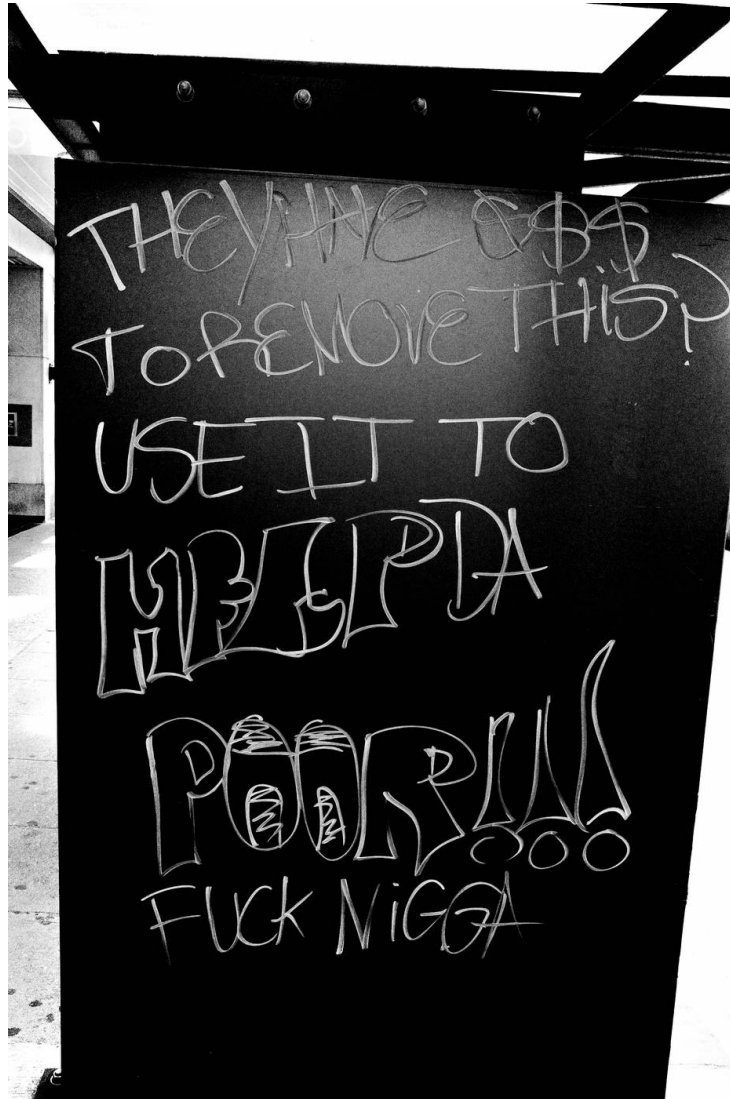 THEY HAVE $$$
TO REMOVE THIS?
USE IT TO
HELP DA
POOR!!!
FUCK NIGGA